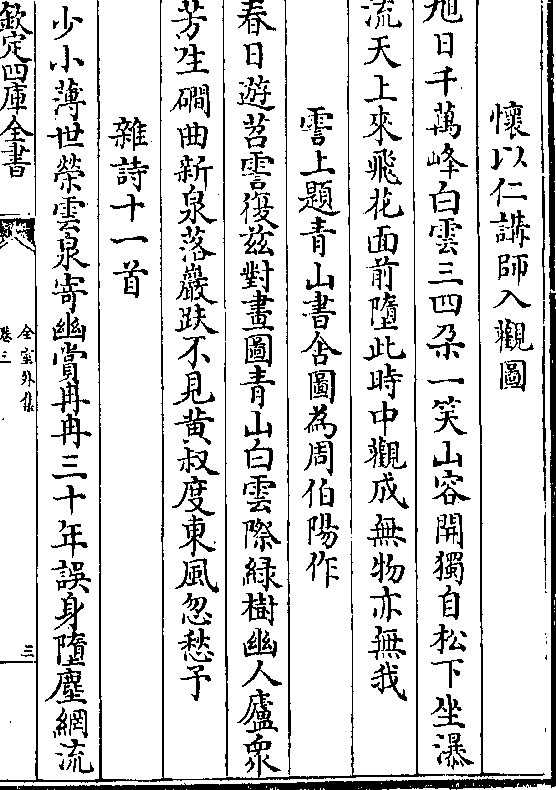 懷以仁講師入觀圖
旭日千萬峰白雲三四朶一笑山容開獨自松下坐瀑
流天上來飛花面前墮此時中觀成無物亦無我
霅上題青山書舍圖為周伯陽作
春日遊苕霅復兹對畫圖青山白雲際緑樹幽人廬衆
芳生磵曲新泉落巖趺不見黄叔度東風忽愁予
雜詩十一首
少小薄世榮雲泉寄幽賞冉冉三十年誤身墮塵網流
欽定四庫全書
全室外集
卷三
三